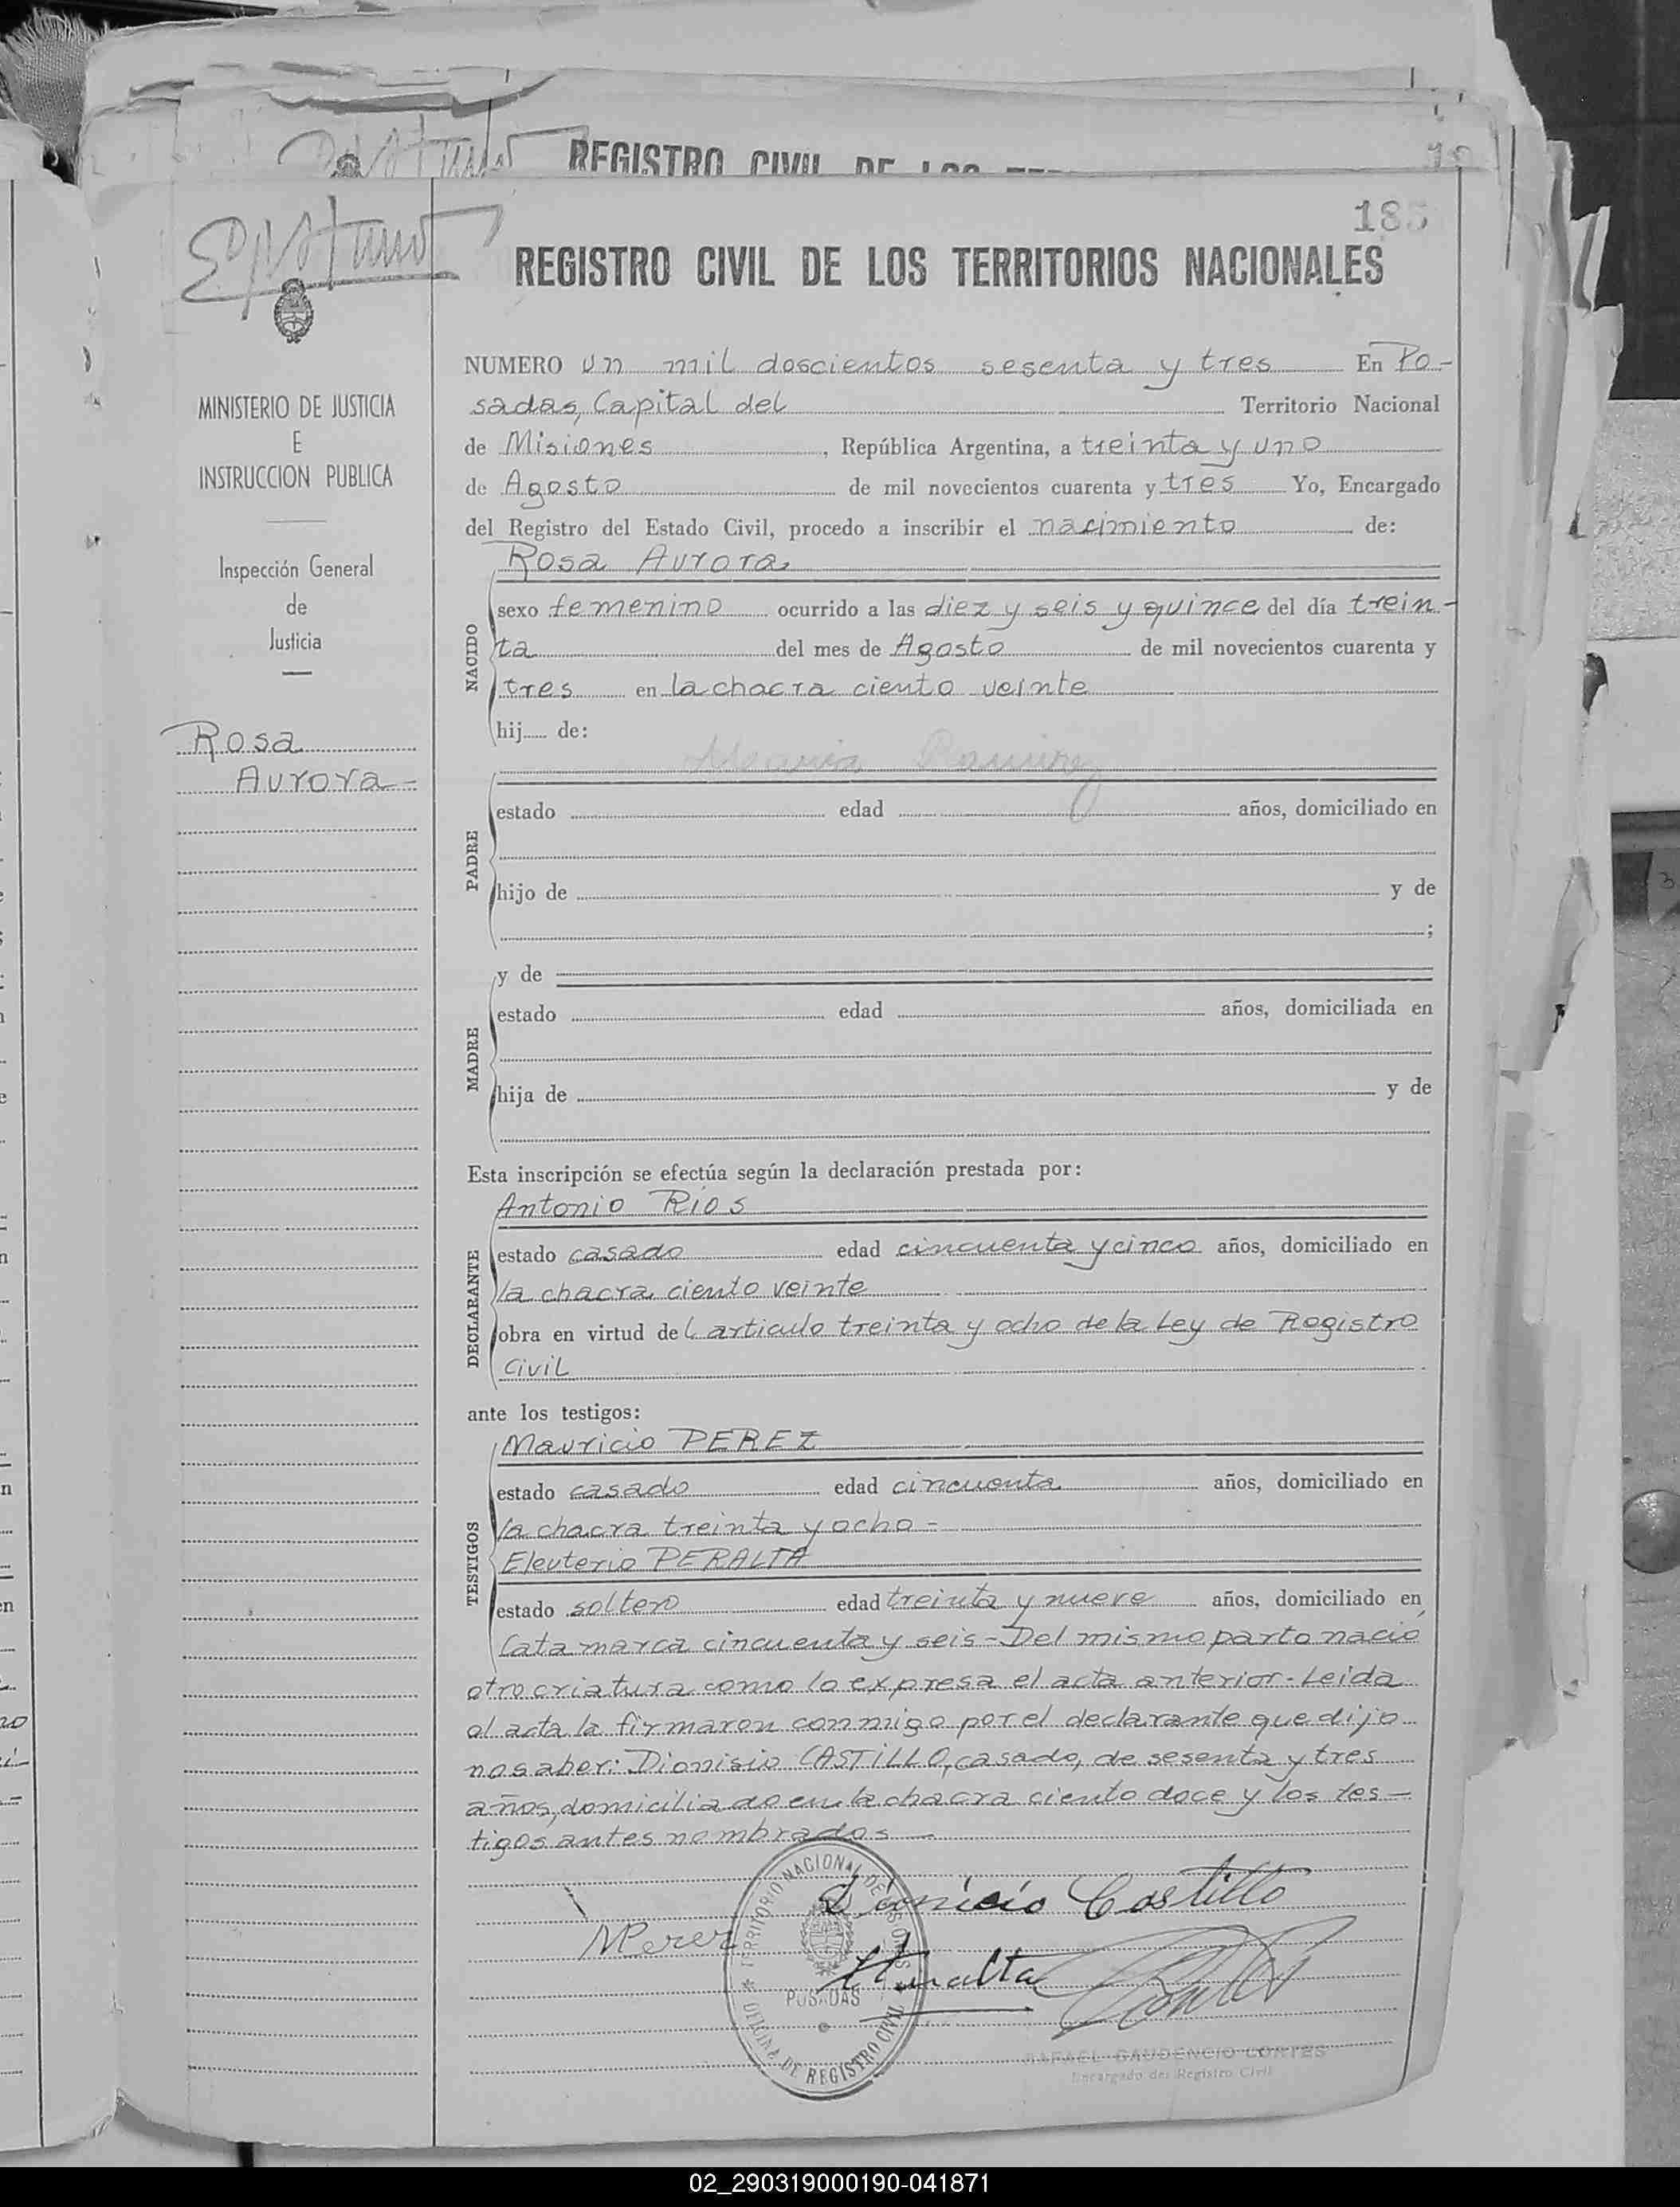 REGISTRO CIVIL DE LOS
18
REGISTRO CIVIL DE LOS TERRITORIOS NACIONALES
MINISTERIO DE JUSTICIA
E
INSTRUCCION PUBLICA
Inspección General
de
Justicia
Rosa
Aurora-
NUMERO un mil doscientos sesenta y tres En Po-
sadas, Capital del Territorio Nacional
de Misiones, República Argentina, a treinta y uno
de Agosto de mil novecientos cuarenta y tres Yo, Encargado
del Registro del Estado Civil, procedo a inscribir el nacimiento de:
Rosa Aurora
NACIDO
sexo femenino ocurrido a las diez y seis y quince del día trein-
ta del mes de Agosto de mil novecientos cuarenta y
tres en la chacra ciento veinte
hij de:
Ramirez
PADRE
estado edad años, domiciliado en
hijo de y de
;
MADRE
y de
estado edad años, domiciliada en
hija de y de
Esta inscripción se efectúa según la declaración prestada por:
Antonio Rios
DECLARANTE
estado casado edad cincuenta y cinco años, domiciliado en
la chacra ciento veinte
obra en virtud del articulo treinta y ocho de la Ley de Registro
Civil
ante los testigos:
Mauricio PEREZ
TESTIGOS
estado casado edad cincuenta años, domiciliado en
la chacra treinta y ocho-
Eleuterio PERALTA
estado soltero edad treinta y nueve años, domiciliado en
Catamarca cincuenta y seis-Del mismo parto nació
otro criatura como lo expresa el acta anterior-Leida
el acta la firmaron conmigo por el declarante que dijo
no saber: Dionisio CASTILLO, casado, de sesenta y tres
años, domiciliado en la chacra ciento doce y los tes-
tigos antes nombrados-
Dionicio Costillo
MPerez
TERRITORIO NACIONAL DE MISIONES
POSADAS
OFICINA DE REGISTRO CIVIL
RAFAEL GAUDENCIO CORTES
Encargado del Registro Civil
02_290319000190-041871